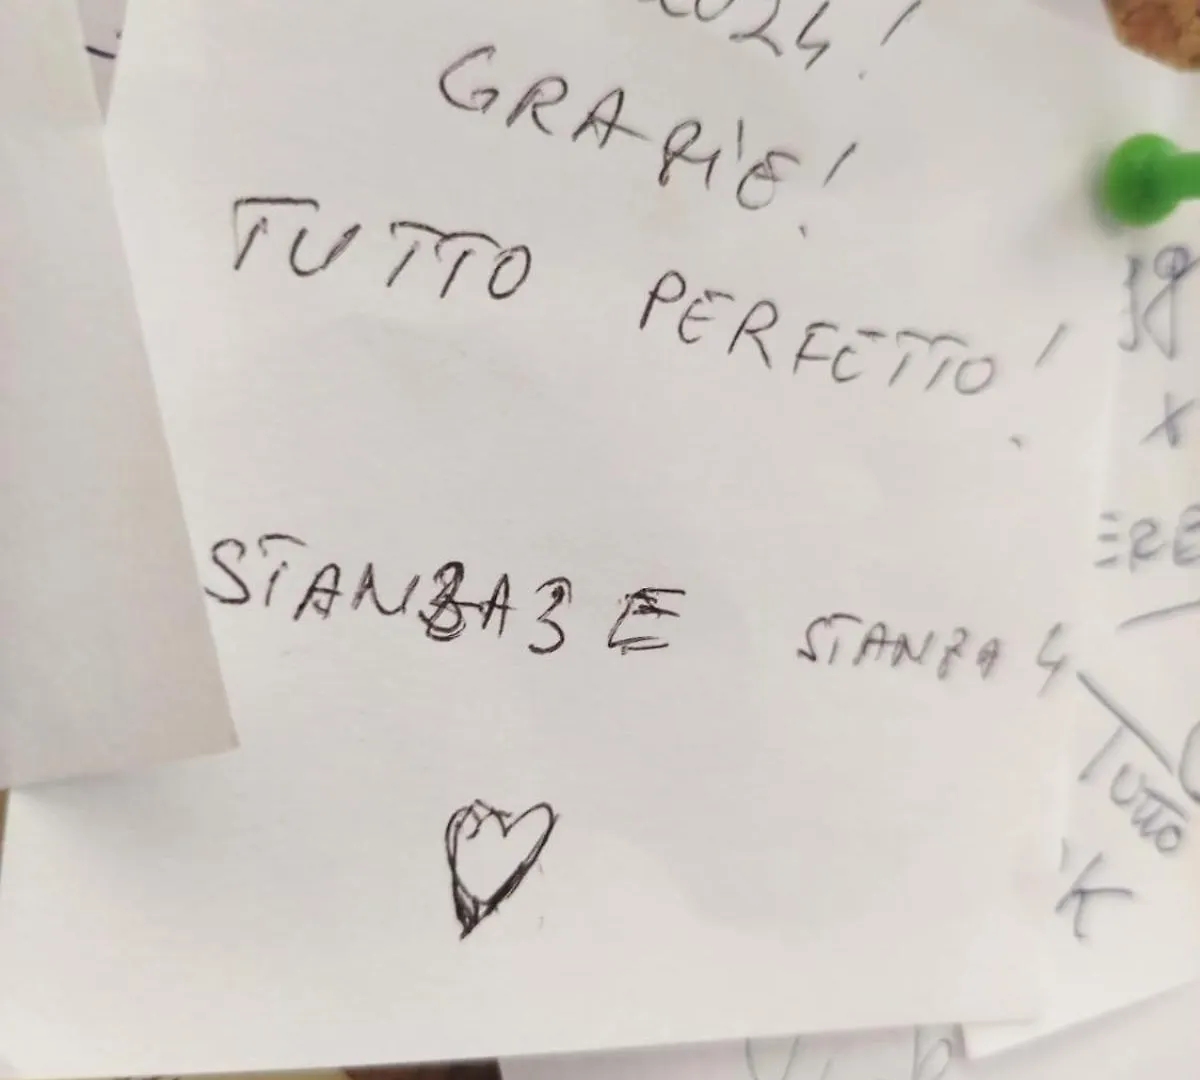 2024!
GRAZIE!
TUTTO PERFETTO!
STANZA 3 E STANZA 4
TUTTO